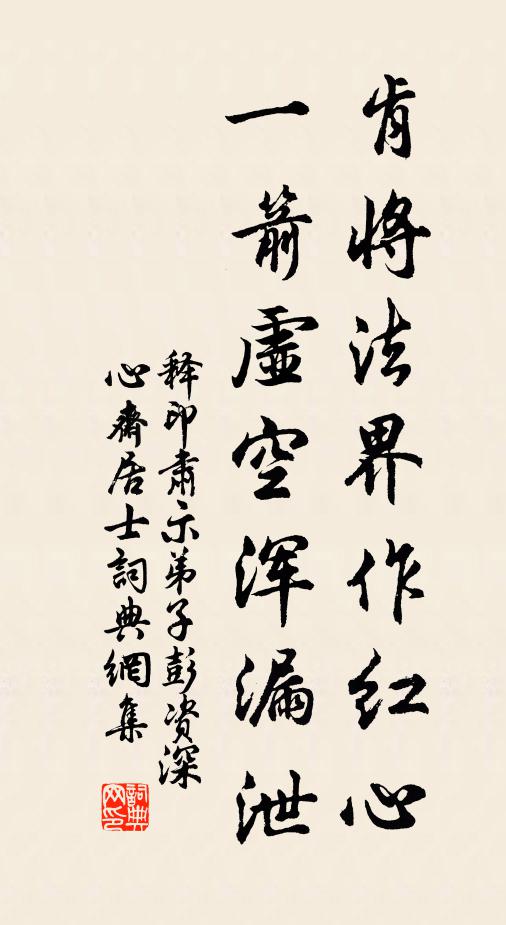 肯将法界作红心
一箭虚空浑漏泄
释印肃示弟子彭资深
心齋居士詞典網集
詞典
网印